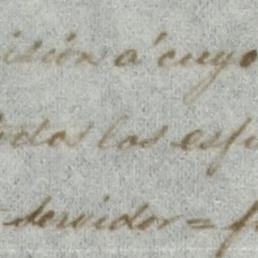 isión á cuyo
todos los esfu
servidor = f